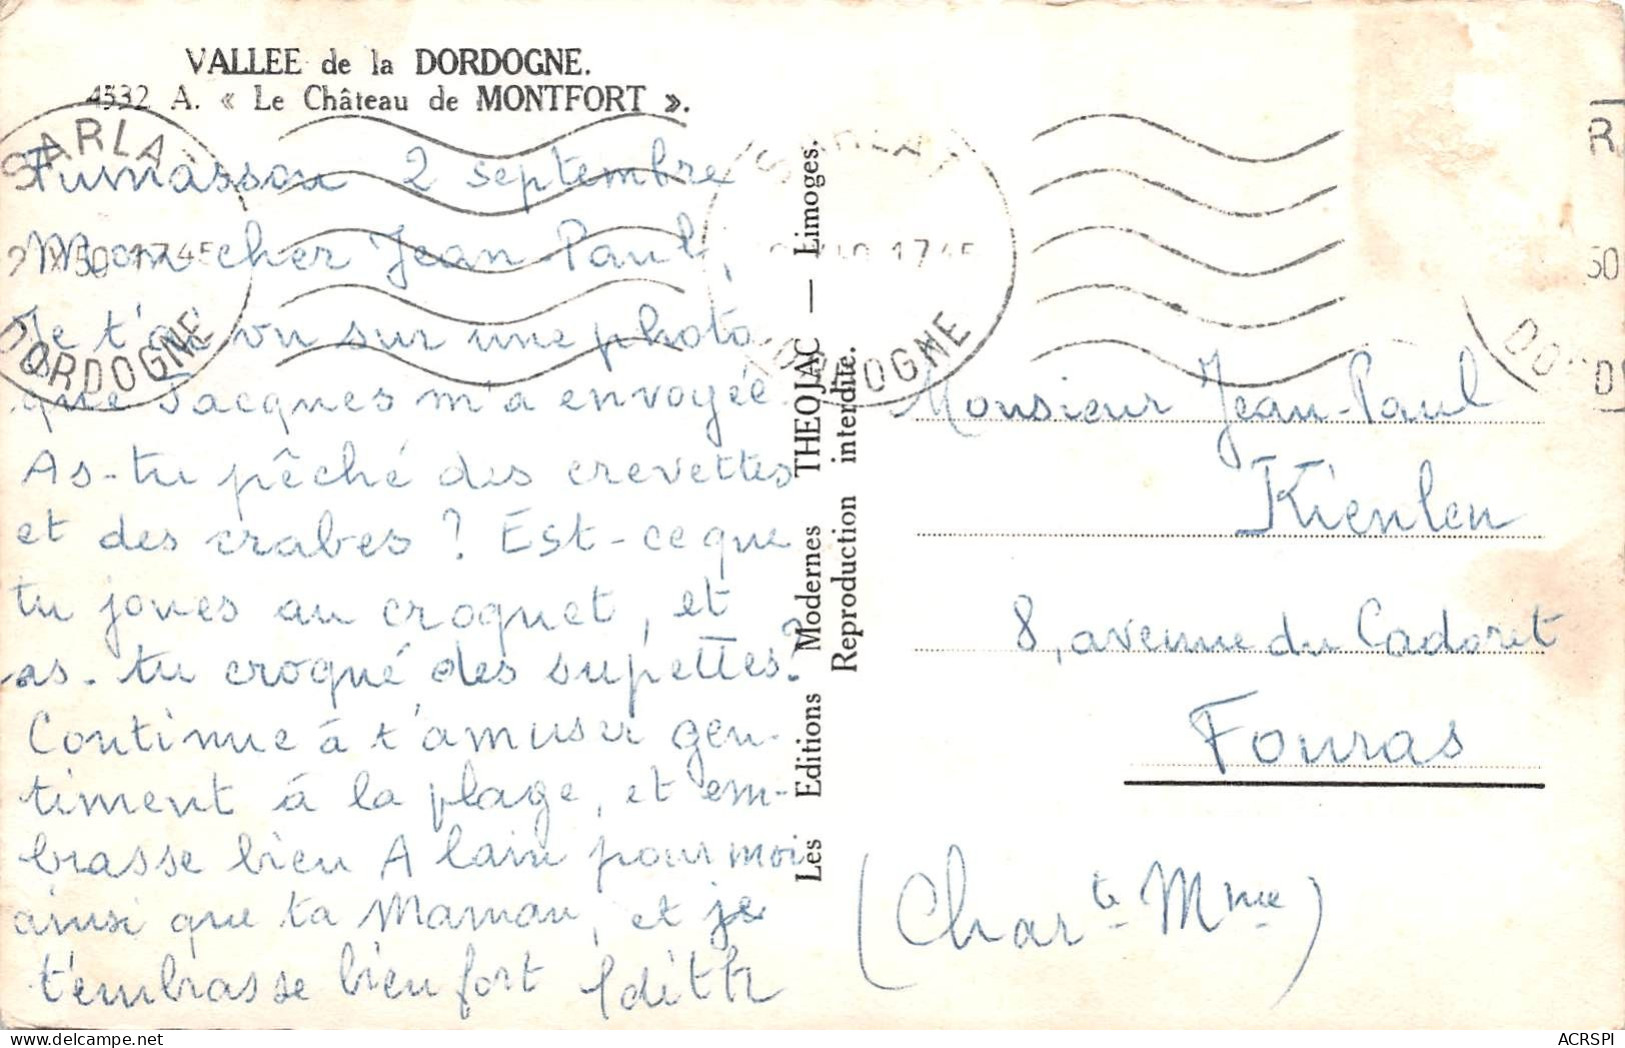 VALLEE de la DORDOGNE.
4532 A. « Le Château de MONTFORT ».
SARLAT
2 IX 50 1745
DORDOGNE
SARLAT
1745
DORDOGNE
50
2 septembre
Mon cher Jean Paul,
Je t'ai vu sur une photo
que Jacques m'a envoyée.
As-tu pêché des crevettes
et des crabes ? Est-ce que
tu joues au croquet, et
as-tu croqué des supettes ?
Continue à t'amuser gen-
timent à la plage, et em-
brasse bien Alain pour moi
ainsi que ta Maman, et je
t'embrasse bien fort Edith
Les Editions Modernes THEOJAC — Limoges.
Reproduction interdite.
Monsieur Jean-Paul
Kienlen
8, avenue du Cadoret
Fouras
(Charte Mme)
ACRSPI